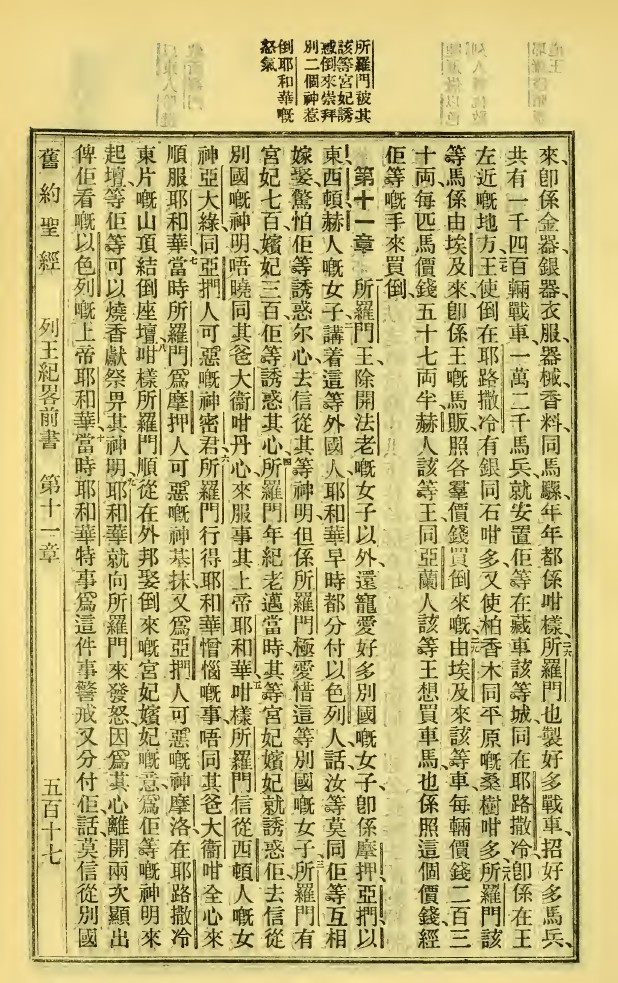 所羅門被其
該等宮妃誘
惑倒來崇拜
別二個神惹
倒耶和華嘅
怒氣
來、卽係金器銀器衣服、器械、香料、同馬騾、年年都係咁樣、二六所羅門也製好多戰車、招好多馬兵、
共有一千四百輛戰車、一萬二千馬兵、就安置佢等在藏車該等城、同在耶路撒冷、卽係在王
左近嘅地方、二七王使倒在耶路撒冷有銀同石咁多、又使柏香木同平原嘅桑樹咁多、二八所羅門該
等馬係由埃及來、卽係王嘅馬販照各羣價錢買倒來嘅、二九由埃及來該等車、每輛價錢二百三
十両、每匹馬價錢五十七両半、赫人該等王、同亞蘭人該等王、想買車馬、也係照這個價錢、經
佢等嘅手來買倒、
第十一章 所羅門王除開法老嘅女子以外、還寵愛好多別國嘅女子、卽係摩押、亞捫、以
東、西頓、赫人嘅女子、講着這等外國人、耶和華早時都分付以色列人話、汝等莫同佢等互相
嫁娶、驚怕佢等誘惑尔心、去信從其等神明、但係所羅門極愛惜這等別國嘅女子、三所羅門有
宮妃七百、嬪妃三百、佢等誘惑其心、四所羅門年紀老邁當時、其等宮妃嬪妃就誘惑佢去信從
別國嘅神明、唔曉同其爸大衞咁丹心來服事其上帝耶和華、五咁樣所羅門信從西頓人嘅女
神亞大綠、同亞捫人可惡嘅神密君、六所羅門行得耶和華憎惱嘅事、唔同其爸大衞咁全心來
順服耶和華、七當時所羅門爲摩押人可惡嘅神基抹、又爲亞捫人可惡嘅神摩洛、在耶路撒冷
東片嘅山頂結倒座壇、八咁樣所羅門順從在外邦娶倒來嘅宮妃嬪妃嘅意、爲佢等嘅神明來
起壇、等佢等可以燒香獻祭畀其神明、九耶和華就向所羅門來發怒、因爲其心離開兩次顯出
俾佢看嘅以色列嘅上帝耶和華、十當時耶和華特事爲這件事警戒、又分付佢話、莫信從別國
舊約聖經 列王紀畧前書 第十一章 五百十七